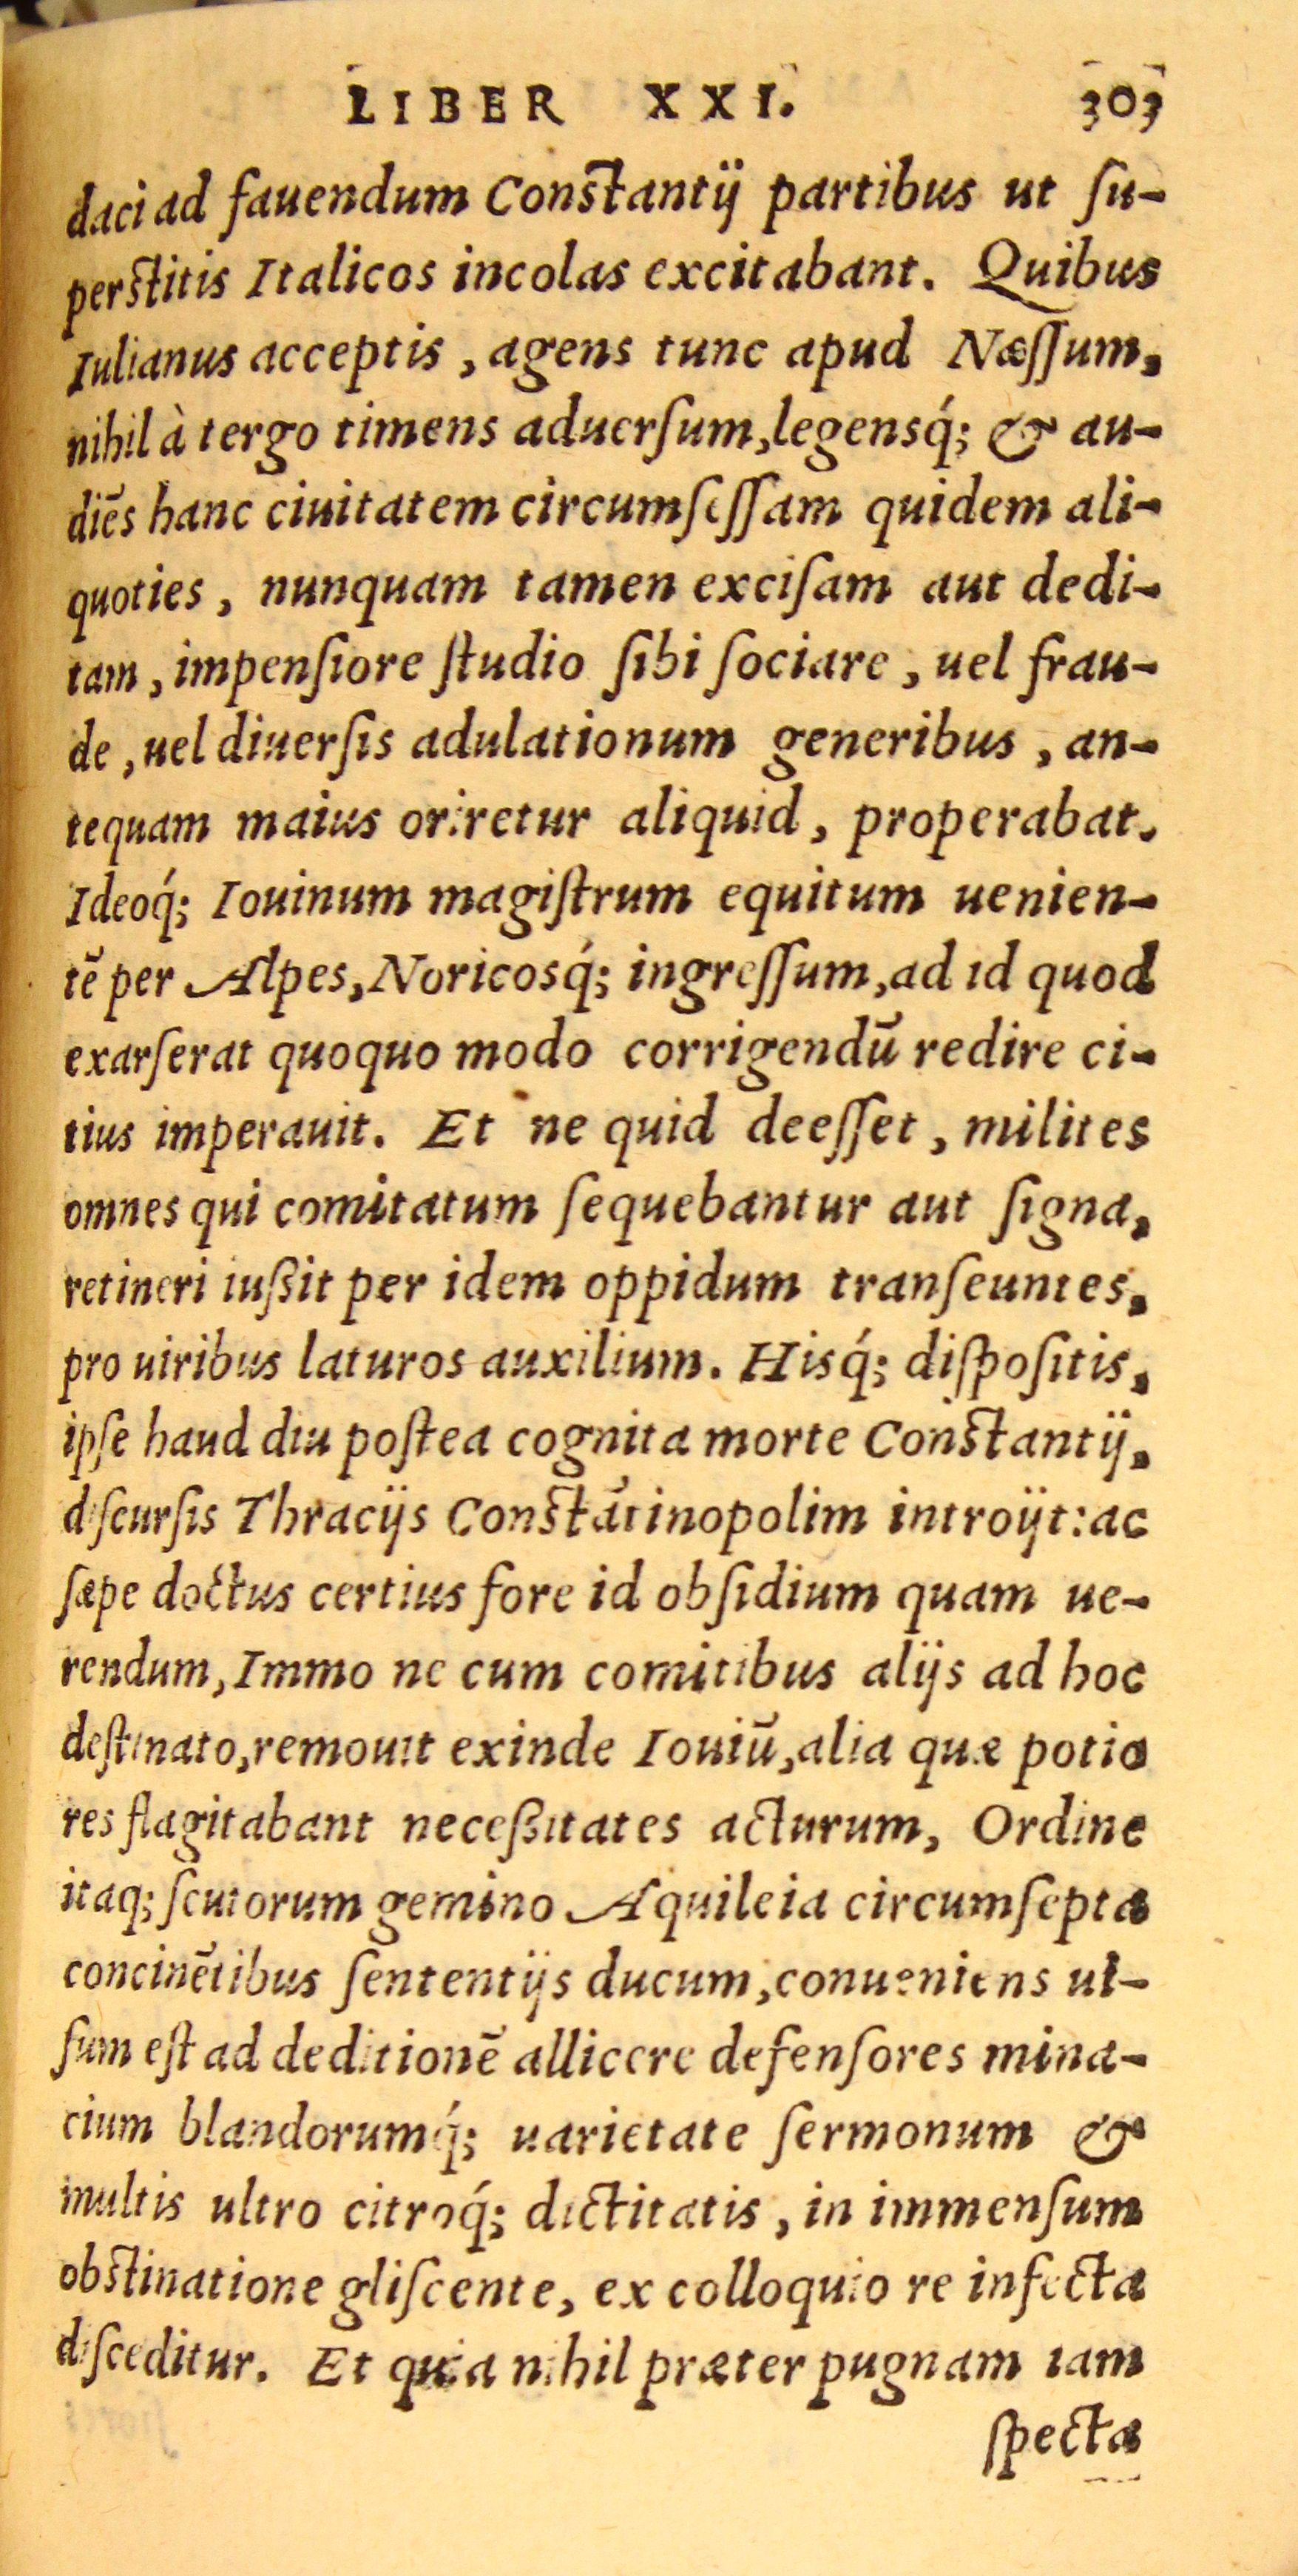 LIBER XXI. 303
daci ad fauendum Constantij partibus ut ſu-
perstitis Italicos incolas excitabant. Quibus
Iulianus acceptis, agens tunc apud Næſſum,
nihil à tergo timens aduerſum, legensq́; & au-
diēs hanc ciuitatem circumſeſſam quidem ali-
quoties, nunquam tamen exciſam aut dedi-
tam, impenſiore ſtudio ſibi ſociare, uel frau-
de, uel diuerſis adulationum generibus, an-
tequam maius oriretur aliquid, properabat.
Ideoq́; Iouinum magiſtrum equitum uenien-
tē per Alpes, Noricosq́; ingreſſum, ad id quod
exarſerat quoquo modo corrigendū redire ci-
tius imperauit. Et ne quid deeſſet, milites
omnes qui comitatum ſequebantur aut ſigna,
retineri iußit per idem oppidum tranſeuntes,
pro uiribus laturos auxilium. Hisq́; diſpoſitis,
ipſe haud diu poſtea cognita morte Constantij,
diſcurſis Thracijs Constātinopolim introijt: ac
ſæpe doctus certius fore id obſidium quam ue-
rendum, Immo ne cum comitibus alijs ad hoc
deſtinato, remouit exinde Iouiū, alia quæ potio
res flagitabant neceßitates acturum, Ordine
itaq; ſcutorum gemino Aquileia circumſepta
concinētibus ſententijs ducum, conueniens ui-
ſum eſt ad deditionē allicere defenſores mina-
cium blandorumq́; uarietate ſermonum &
multis ultro citroq́; dictitatis, in immenſum
obstinatione gliſcente, ex colloquio re infecta
diſceditur. Et quia nihil præter pugnam iam
ſpecta